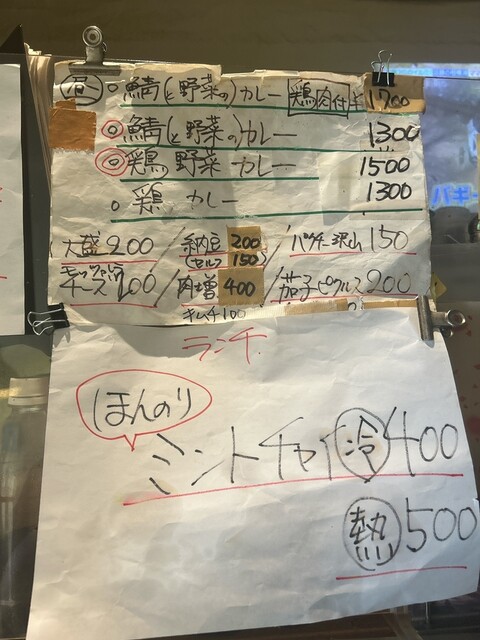 鯖(と野菜の)カレー 鶏肉付き 1700
◎鯖(と野菜の)カレー 1300
◎鶏野菜カレー 1500
○鶏カレー 1300
大盛200/納豆200/パクチー沢山150
(セルフ150)
チーズ200/肉増400/茄子ピクルス200
キムチ100
ランチ
ほんのり
ミントチャイ冷400
熱500